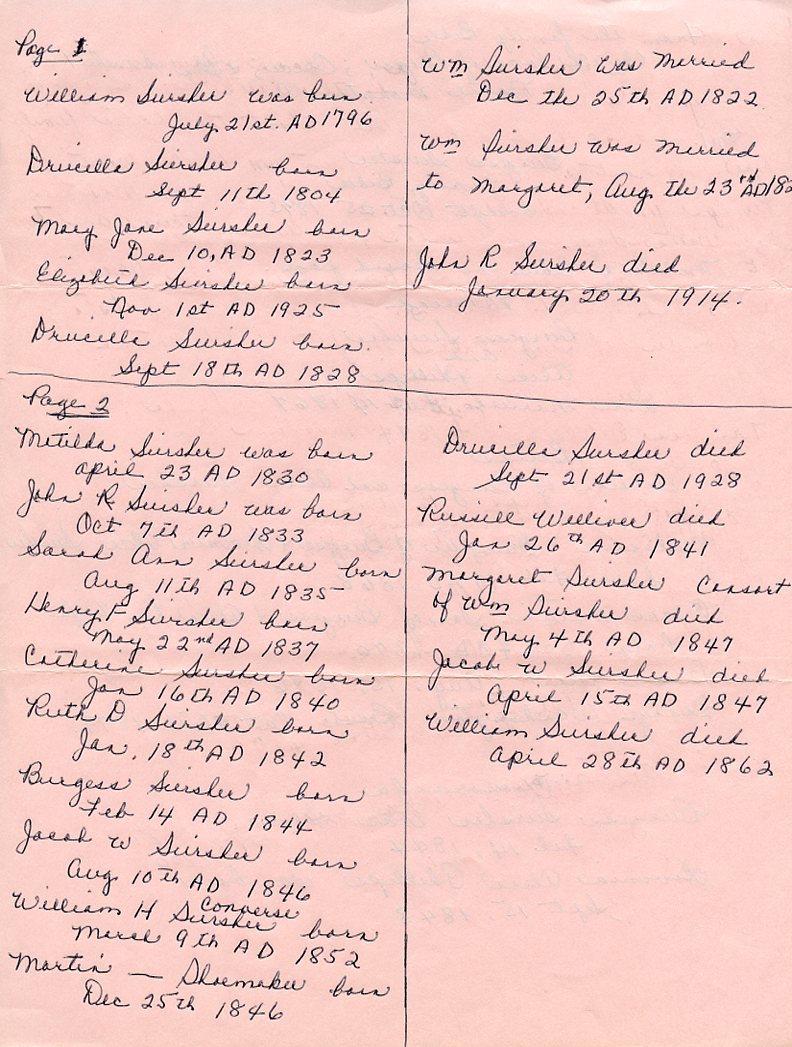 Page 1
William Suisher was born
July 21st. AD 1796
Drucilla Suisher born
Sept 11th 1804
Mary Jane Suisher born
Dec 10, AD 1823
Elizabeth Suisher born
Nov 1st AD 1925
Drucilla Suisher born.
Sept 18th AD 1828
Wm Suisher was Merried
Dec the 25th AD 1822
Wm Suisher was Merried
to Margaret, Aug the 23rd AD
John R Suisher died
January 20th 1914.
Page 2
Metilda Suisher was born
april 23 AD 1830
John R Suisher was born
Oct 7th AD 1833
Sarah Ann Suisher born
Aug 11th AD 1835
Henry F Suisher born
May 22nd AD 1837
Catherine Suisher born
Jan 16th AD 1840
Ruth D Suisher born
Jan. 18th AD 1842
Burgess Suisher born
Feb 14 AD 1844
Jacob W Suisher born
Aug 10th AD 1846
William H Converse Suisher born
March 9th AD 1852
Martin — Shoemaker born
Dec 25th 1846
Drucilla Suisher died
Sept 21st AD 1928
Russell Welliver died
Jan 26th AD 1841
Margaret Suisher Consort
of Wm Suisher died
May 4th AD 1847
Jacob W Suisher died
April 15th AD 1847
William Suisher died
April 28th AD 1862